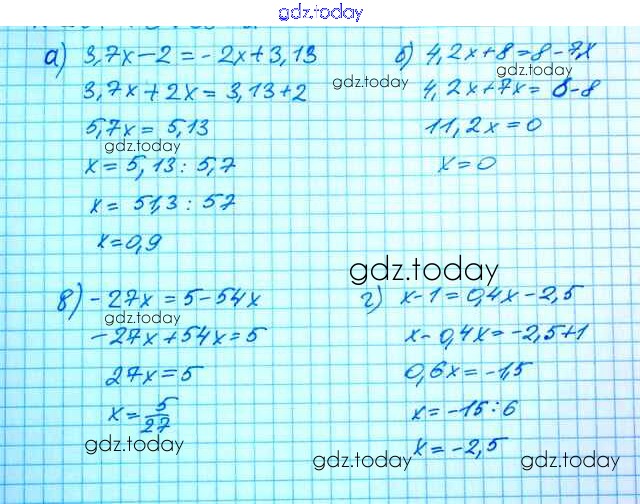 gdz.today
а) 3,7x-2=-2x+3,13
3,7x+2x=3,13+2
5,7x=5,13
gdz.today
x=5,13:5,7
x=51,3:57
x=0,9
б) 4,2x+8=8-7x
gdz.today
4,2x+7x=8-8
gdz.today
11,2x=0
x=0
gdz.today
в) -27x=5-54x
gdz.today
-27x+54x=5
27x=5
x=5/27
gdz.today
г) x-1=0,4x-2,5
x-0,4x=-2,5+1
0,6x=-1,5
x=-15:6
x=-2,5
gdz.today
gdz.today